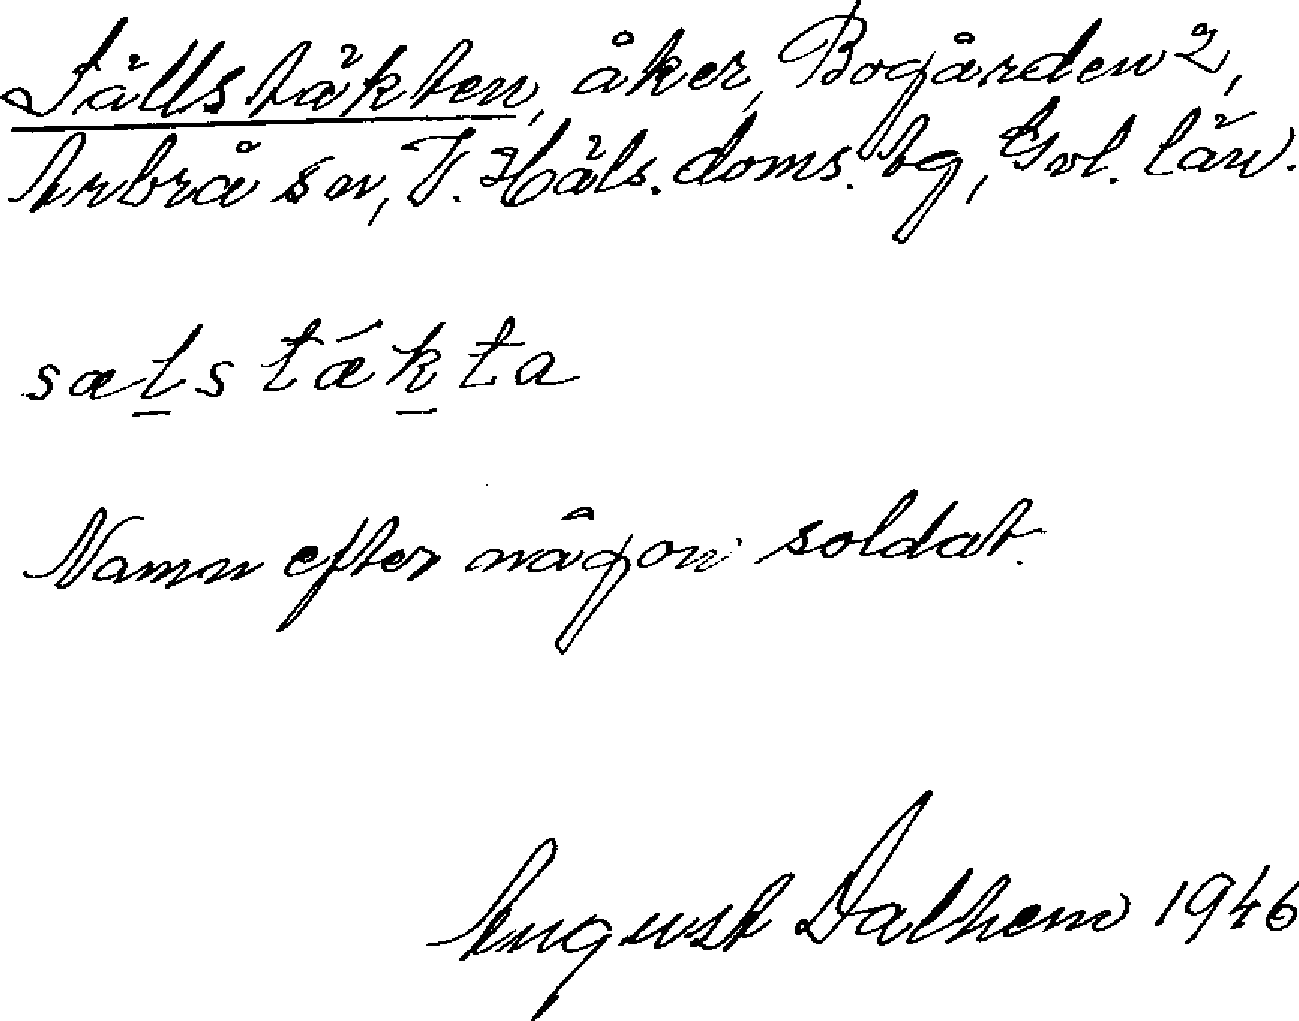 Sällstäkten, åker, Bogården 2,
Arbrå sn, V. Häls. doms. tg, Gvl. län.
sælstǽkta
Namn efter någon soldat.
August Dalhem 1946